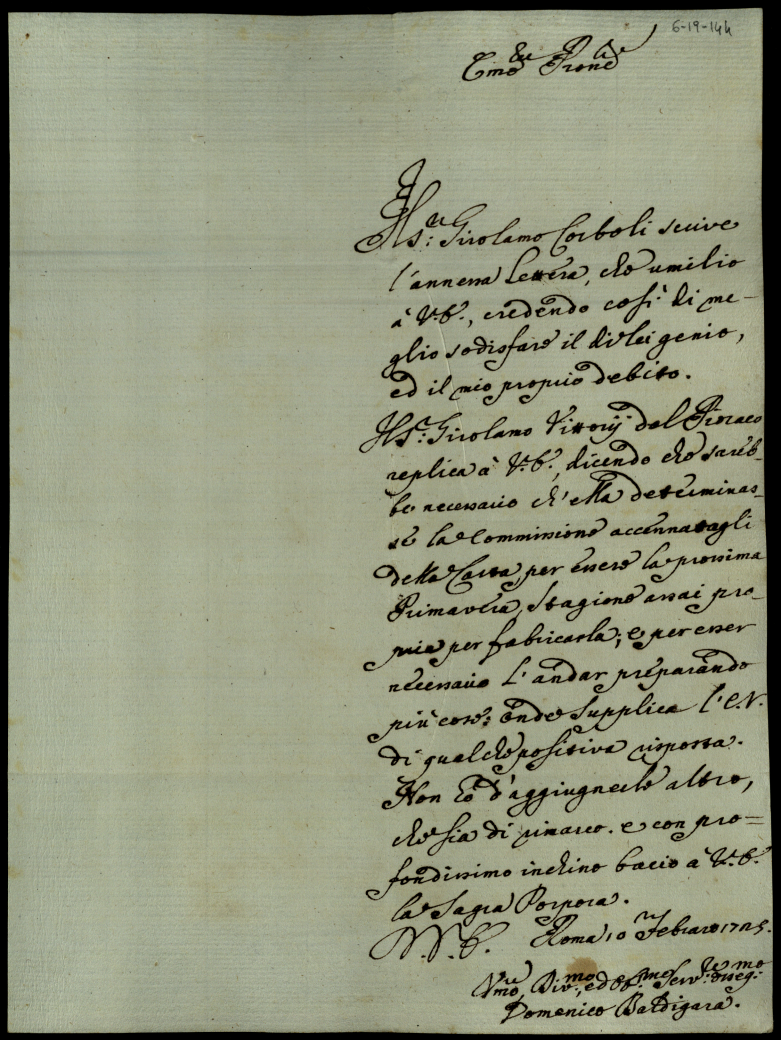 6-19-144
Em.e e Pron.e
Il S.r Girolamo Corboli scrive
l'annessa lettera, che umilio
à V.E., credendo così di me-
glio sodisfare il di lei genio,
ed il mio proprio debito.
Il S.r Girolamo Vittorij del Pioraco
replica à V.E., dicendo che sareb-
be necessario ch'ella determinas-
se la Commissione accennatagli
della Carta, per essere la prossima
Primavera, Stagione assai pro-
pria per fabricarla; e per esser
necessario l'andar preparando
più cose; onde supplica l'E.V.
di qualche positiva risposta.
Non hò d'aggiugnerle altro,
che sia di rimarco. e con pro=
fondissimo inchino bacio à V.E.
la Sagra Porpora.
D.V.E. Roma 10 Febraro 1725.
Div.mo, ed Obb.mo Serv.re
Domenico Baldigara.